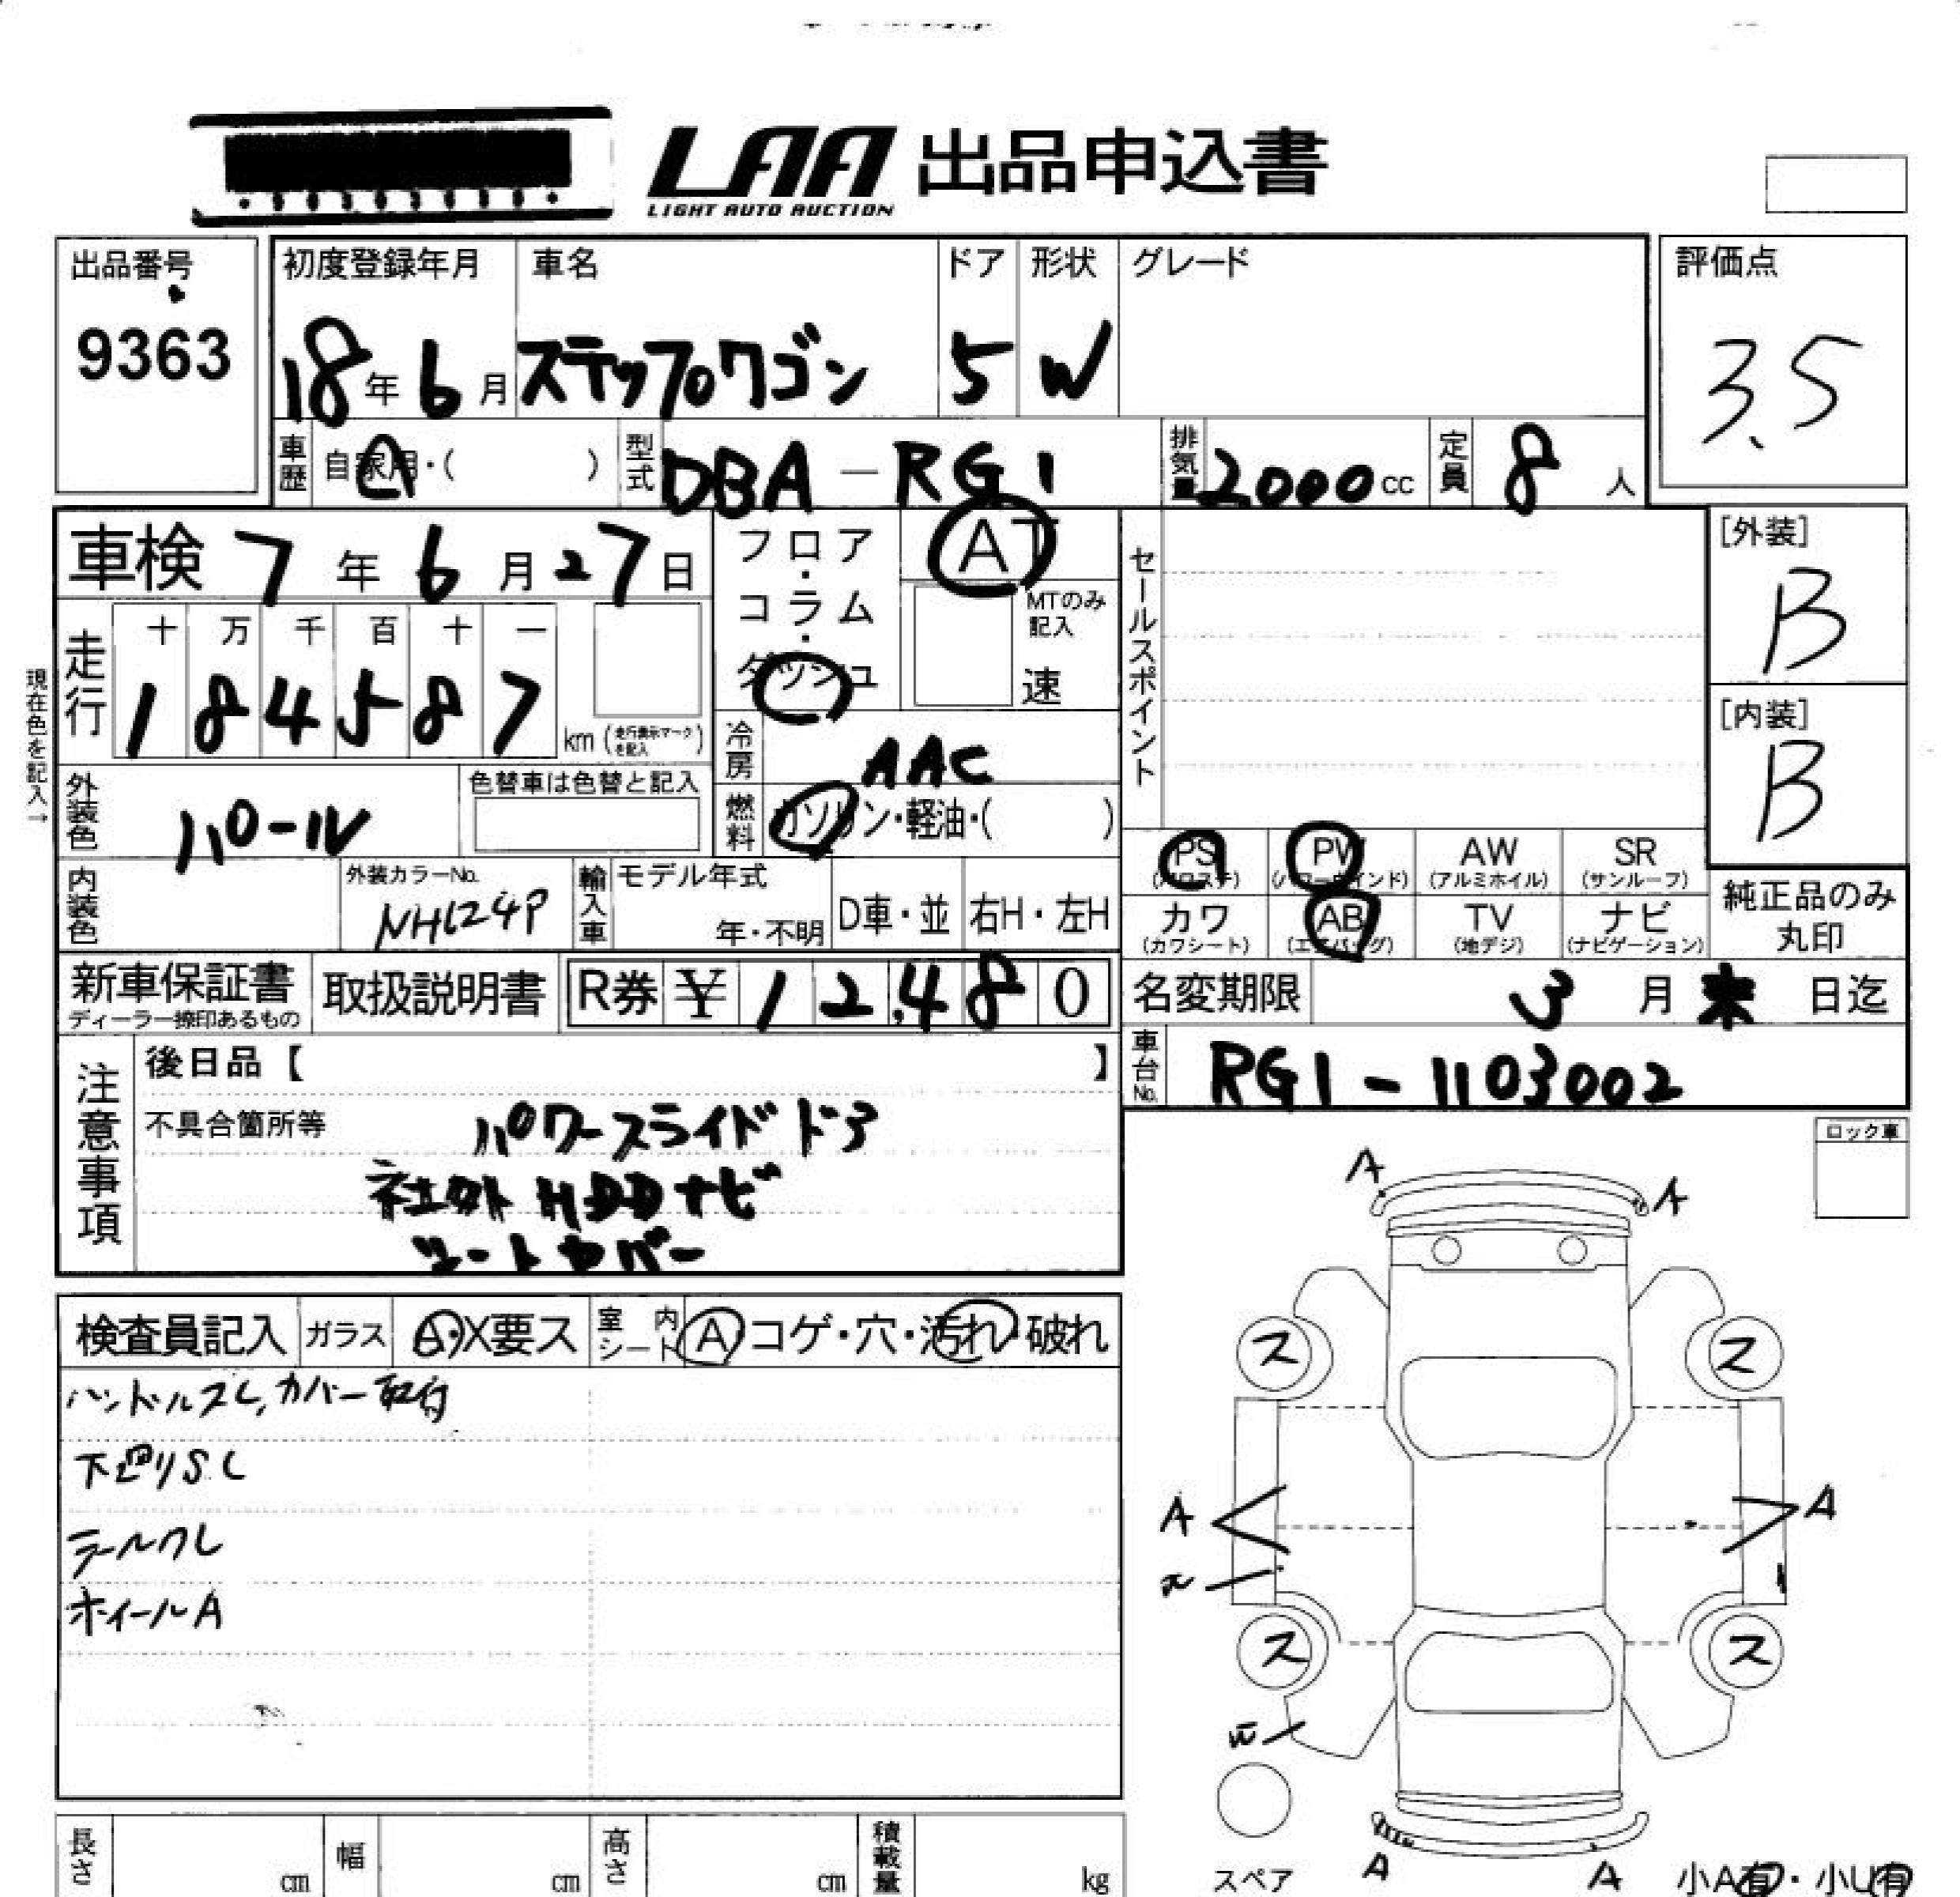 LAA 出品申込書
LIGHT AUTO AUCTION
出品番号
9363
初度登録年月
18年6月
車名
ステップワゴン
ドア
5
形状
W
グレード
評価点
3.5
車歴
自家用・( )
型式
DBA-RG1
排気量
2000cc
定員
8人
車検 7年6月27日
フロア・コラム・ダッシュ
AT
MTのみ記入
速
セールスポイント
[外装]
B
[内装]
B
現在色を記入→
走行
十 万 千 百 十 一
1 8 4 5 8 7
km (走行表示マークを記入)
冷房
AAC
外装色
パール
色替車は色替と記入
燃料
ガソリン・軽油・( )
内装色
外装カラーNo.
NH624P
輸入車
モデル年式
年・不明
D車・並
右H・左H
PS (パワステ)
PW (パワーウインド)
AW (アルミホイル)
SR (サンルーフ)
カワ (カワシート)
AB (エアバッグ)
TV (地デジ)
ナビ (ナビゲーション)
純正品のみ
丸印
新車保証書
ディーラー捺印あるもの
取扱説明書
R券 ¥12,480
名変期限 3月末日迄
車台No.
RG1-1103002
注意事項
後日品【 】
不具合箇所等
パワースライドドア
社外HDDナビ
シートカバー
ロック車
検査員記入
ガラス
A・X要ス
室内シート
A・コゲ・穴・汚れ・破れ
ハンドルスレ,カバー取付
下廻りSC
テールクレ
ホイールA
A
A
ス
ス
A
A
ス
ス
A
A
スペア
小A有・小U有
長さ
cm
幅
cm
高さ
cm
積載量
kg